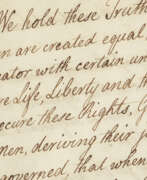 We hold these Truth
are created equal,
with certain un
Life, Liberty and
ecure these Rights, G
men, deriving their
governed, that when